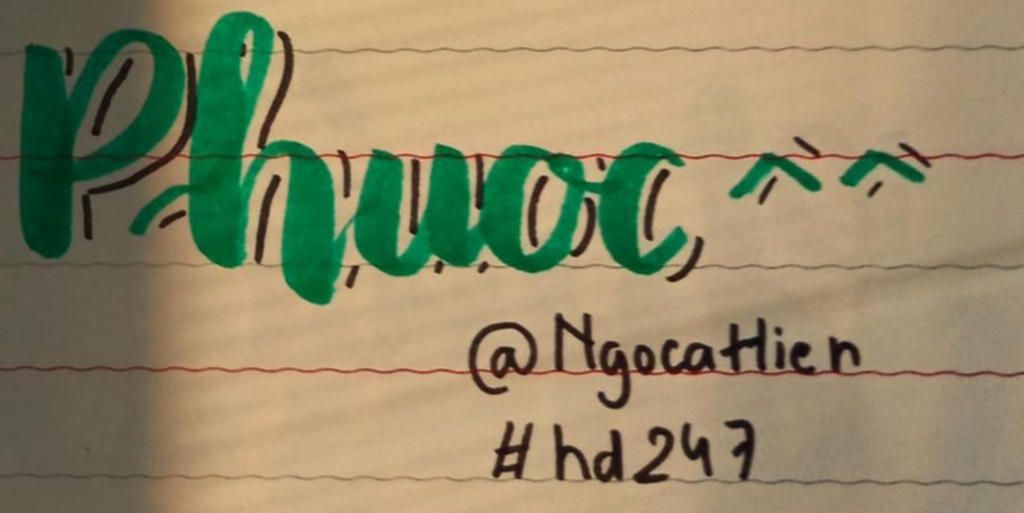 Phuoc ^^
@NgocaHien
#hd247